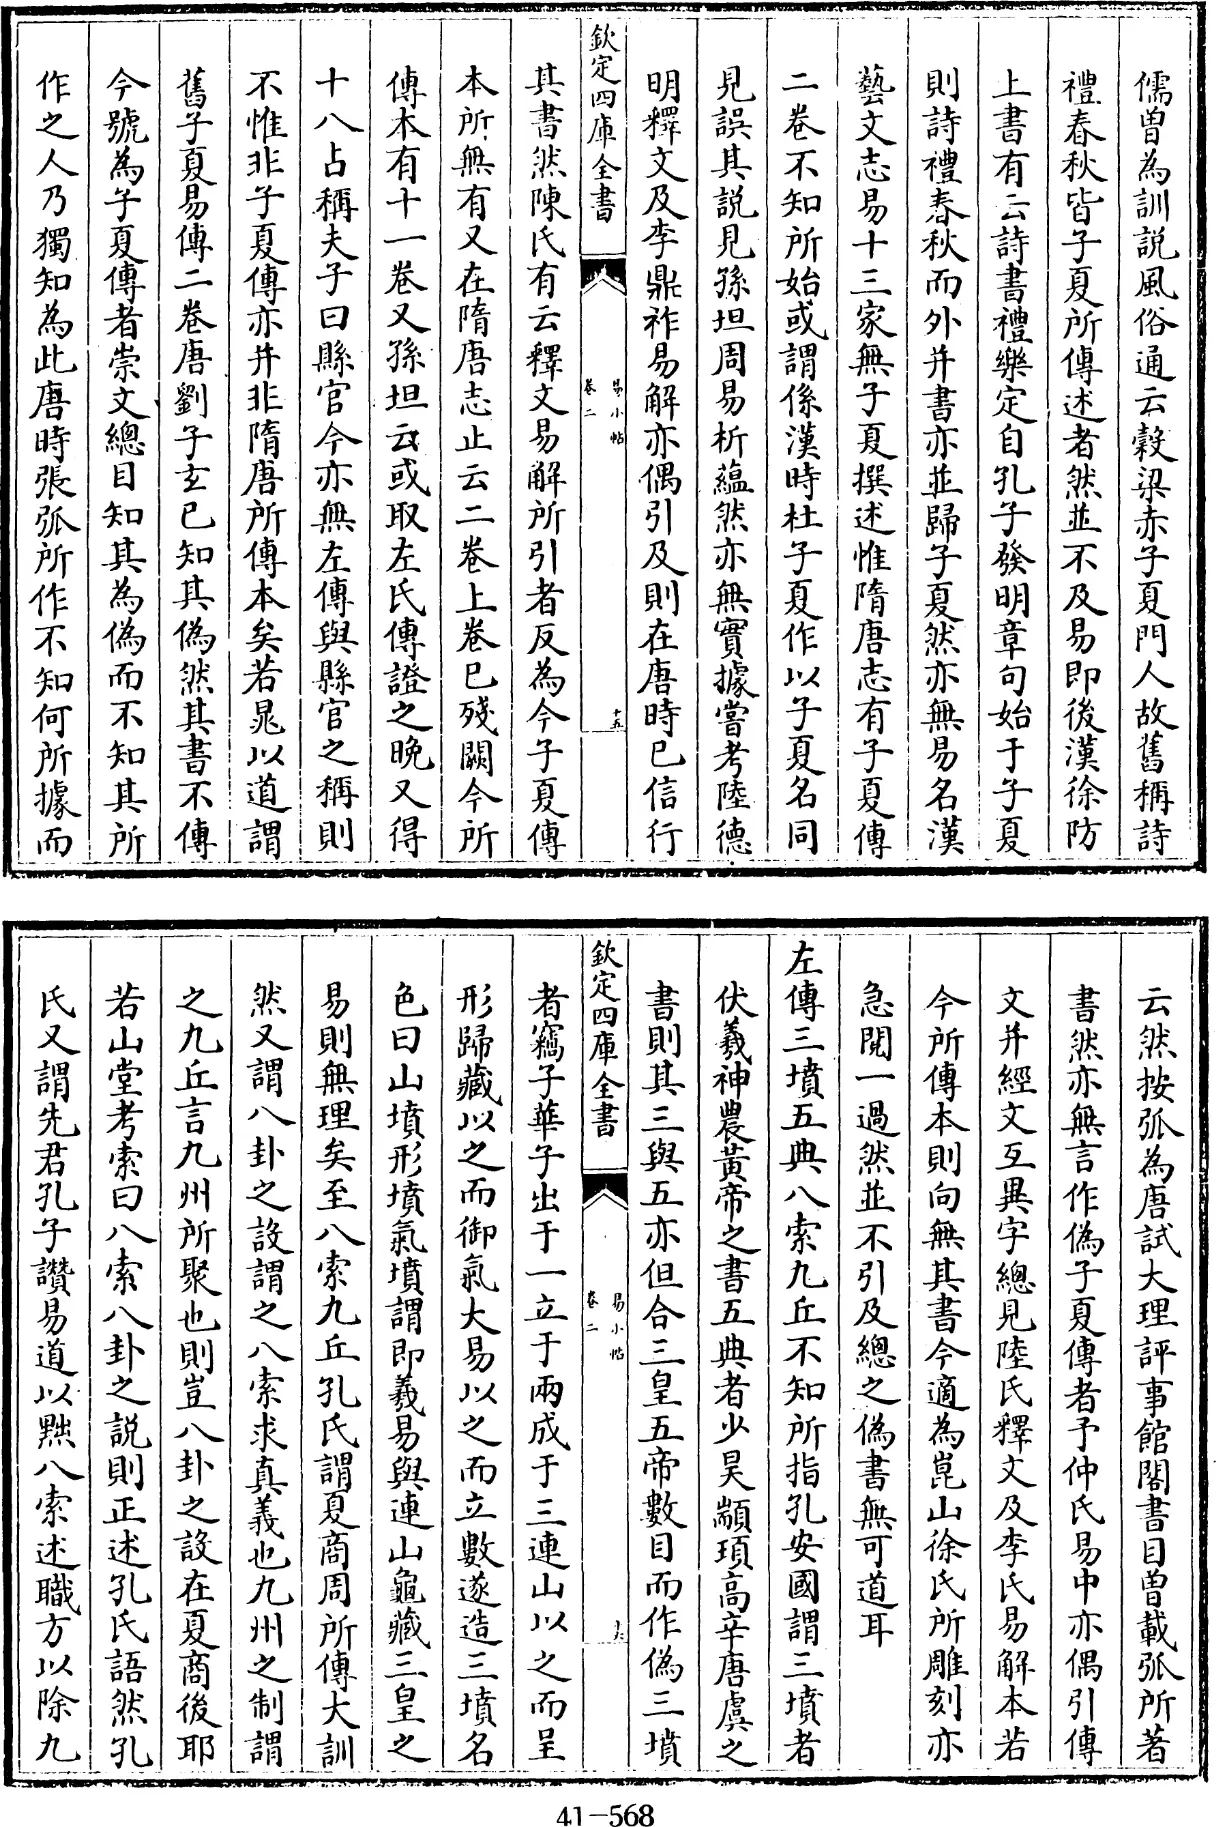 儒曽為訓説風俗通云穀梁赤子夏門人故舊稱詩
禮春秋皆子夏所傳述者然並不及易即後漢徐防
上書有云詩書禮樂定自孔子發明章句始于子夏
則詩禮春秋而外并書亦並歸子夏然亦無易名漢
藝文志易十三家無子夏撰述惟隋唐志有子夏傳
二卷不知所始或謂係漢時杜子夏作以子夏名同
見誤其説見孫坦周易析蘊然亦無實據嘗考陸德
明釋文及李鼎祚易解亦偶引及則在唐時已信行
欽定四庫全書
易小帖
卷二
十五
其書然陳氏有云釋文易解所引者反為今子夏傳
本所無有又在隋唐志止云二卷上卷已殘闕今所
傳本有十一卷又孫坦云或取左氏傳證之晩又得
十八占稱夫子曰縣官今亦無左傳與縣官之稱則
不惟非子夏傳亦并非隋唐所傳本矣若晁以道謂
舊子夏易傳二卷唐劉子玄已知其偽然其書不傳
今號為子夏傳者崇文總目知其為偽而不知其所
作之人乃獨知為此唐時張弧所作不知何所據而
云然按弧為唐試大理評事館閣書目曽載弧所著
書然亦無言作偽子夏傳者予仲氏易中亦偶引傳
文并經文互異字總見陸氏釋文及李氏易解本若
今所傳本則向無其書今適為崑山徐氏所雕刻亦
急閱一過然並不引及總之偽書無可道耳
左傳三墳五典八索九丘不知所指孔安國謂三墳者
伏羲神農黄帝之書五典者少昊顓頊高辛唐虞之
書則其三與五亦但合三皇五帝數目而作偽三墳
欽定四庫全書
易小帖
卷二
十六
者竊子華子出于一立于兩成于三連山以之而呈
形歸藏以之而御氣大易以之而立數遂造三墳名
色曰山墳形墳氣墳謂即羲易與連山龜藏三皇之
易則無理矣至八索九丘孔氏謂夏商周所傳大訓
然又謂八卦之設謂之八索求真義也九州之制謂
之九丘言九州所聚也則豈八卦之設在夏商後耶
若山堂考索曰八索八卦之説則正述孔氏語然孔
氏又謂先君孔子讚易道以黜八索述職方以除九
41-568